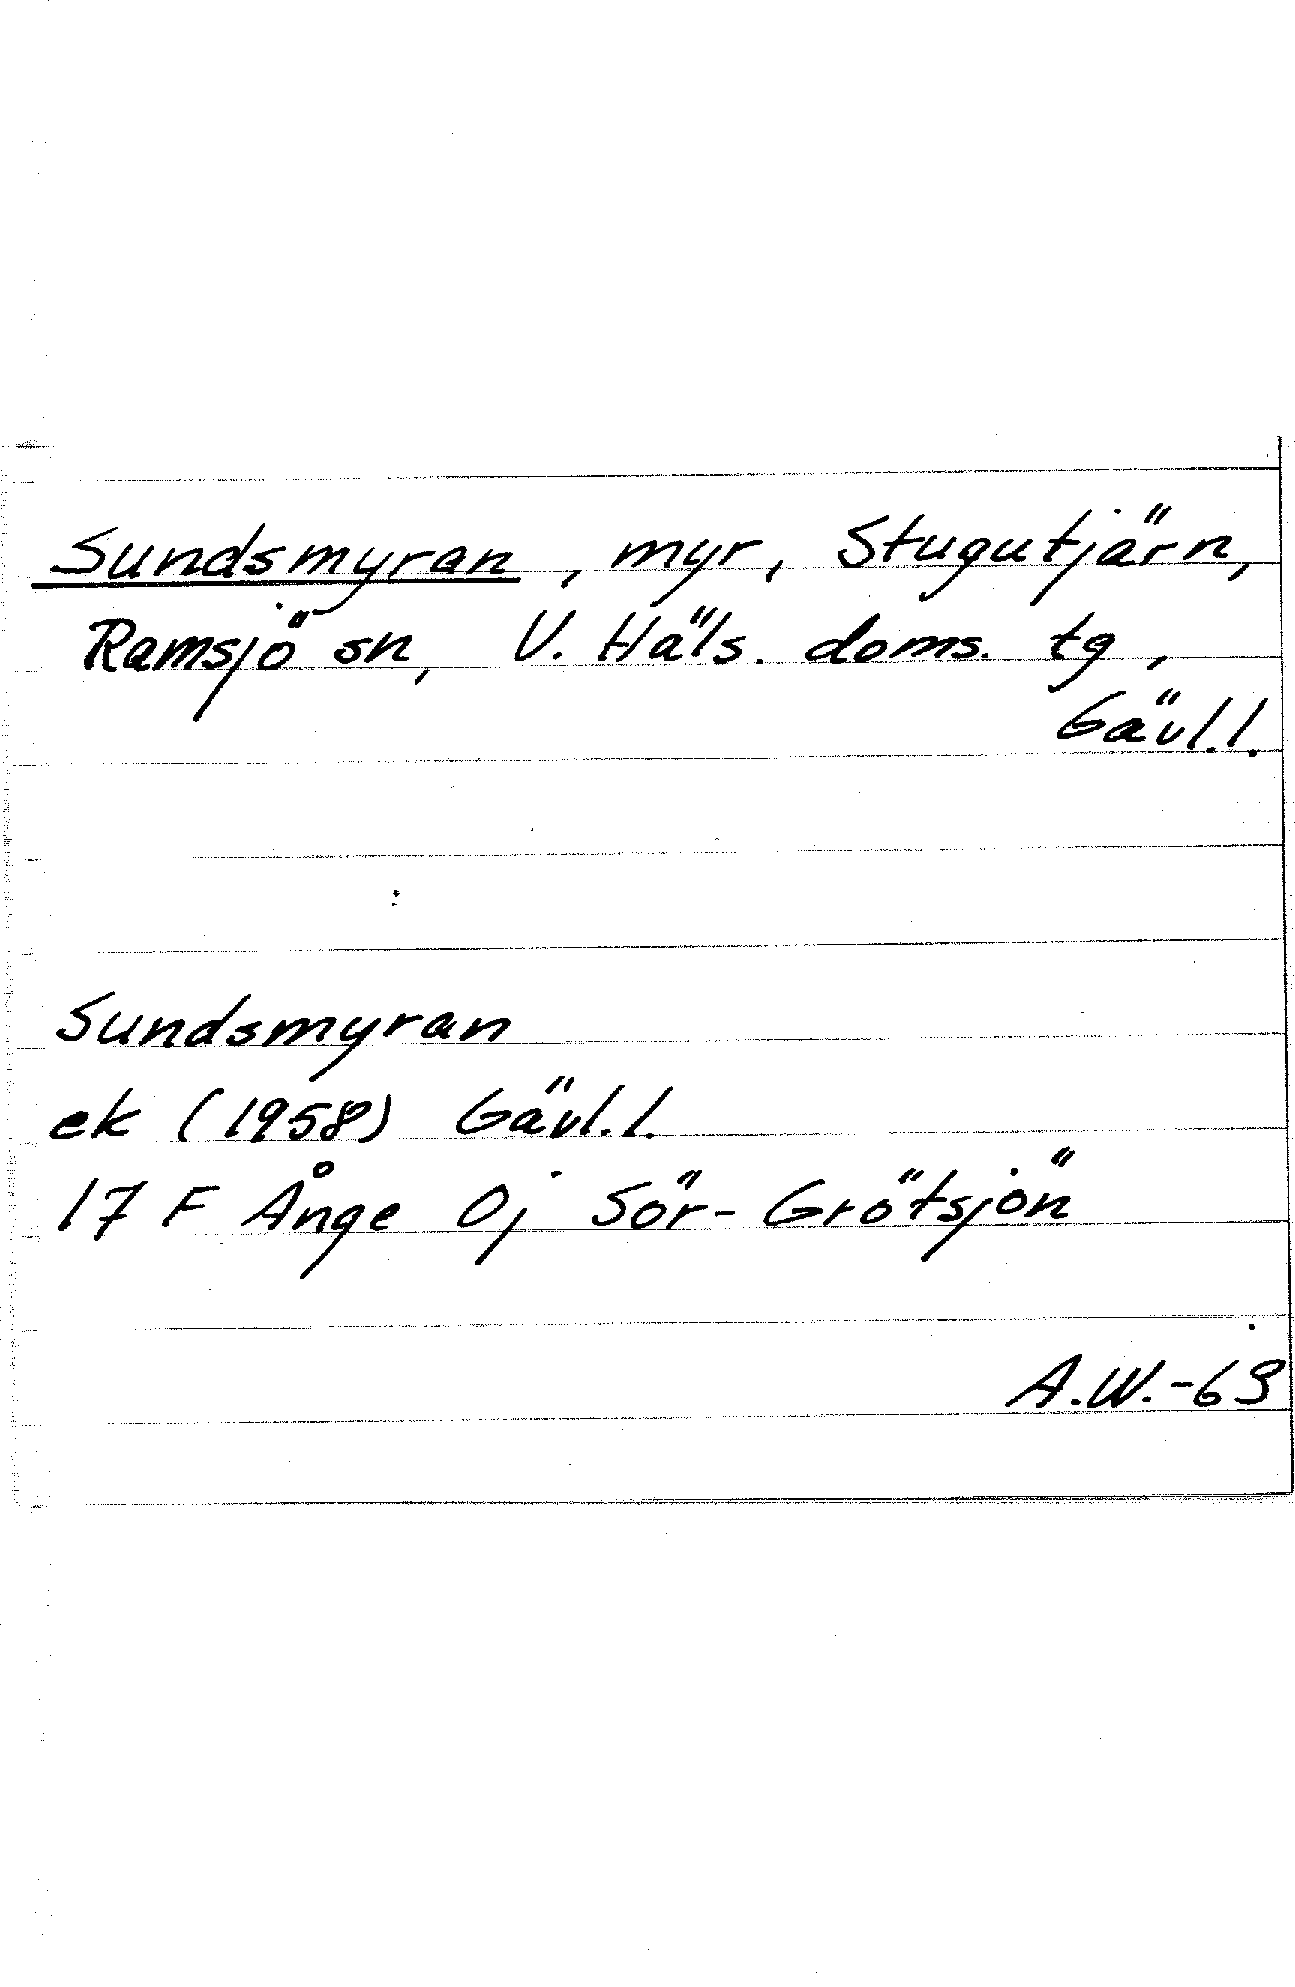 Sundsmyran, myr, Stugutjärn,
Ramsjö sn, V. Häls. doms. tg,
Gävl.l.
Sundsmyran
ek (1958) Gävl.l.
17 F Ånge 0j Sör-Grötsjön
A.W.-69